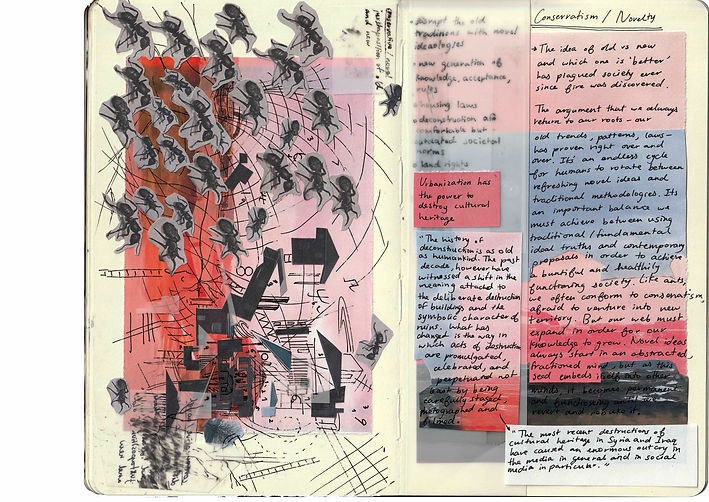 conservative / novel
juxtaposition of old
and new
disrupt the old
traditions with novel
ideologies
new generation of
knowledge, acceptance,
rules
housing laws
deconstruction
comfortable but
outdated societal
norms
land rights
Urbanization has
the power to
destroy cultural
heritage
"The history of
deconstruction is as old
as humankind. The past
decade, however have
witnessed a shift in the
meaning attached to
the deliberate destruction
of buildings and the
symbolic character of
ruins. What has
changed is the way in
which acts of destruction
are promulgated,
celebrated, and
perpetuated not
least by being
carefully staged,
photographed and
filmed.
Conservatism / Novelty
→ The idea of old vs new
and which one is 'better'
has plagued society ever
since fire was discovered.
The argument that we always
return to our roots - our
old trends, patterns, laws-
has proven right over and
over. It's an endless cycle
for humans to rotate between
refreshing novel ideas and
traditional methodologies. Its
an important balance we
must achieve between using
traditional / fundamental
ideal truths and contemporary
proposals in order to achieve
a bountiful and healthily
functioning society. Like ants,
we often conform to conservatism,
afraid to venture into new
territory. But our web must
expand in order for our
knowledge to grow. Novel ideas
always start in an abstracted,
fractioned mind, but as this
seed embeds itself into other
minds, it becomes permanent
and functioning until we
revert and refuse it.
"The most recent destructions of
cultural heritage in Syria and Iraq
have caused an enormous outcry in
the media in general and in social
media in particular."